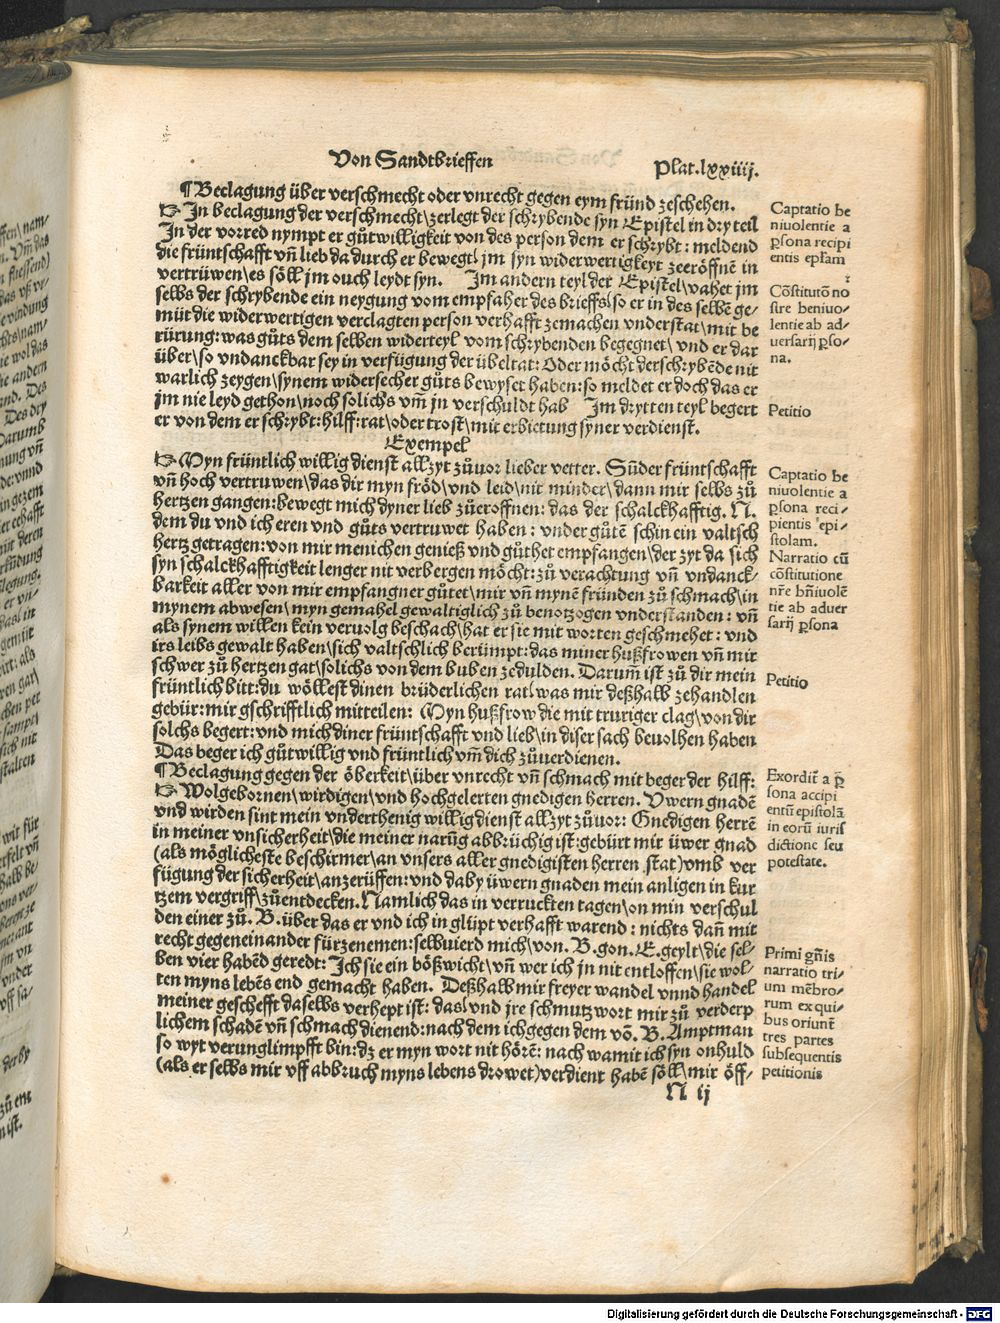 Von Sandtbrieffen
Plat.lxxiiij.
¶ Beclagung über verschmecht oder vnrecht gegen eym fründ zeschehen.
☞ In beclagung der verschmecht\zerlegt der schrybende syn Epistel in dry teil
In der vorred nympt er gůtwilligkeit von des person dem er schrybt: meldend
die früntschafft vñ lieb da durch er bewegt\jm syn widerwertigkeyt zeeröffnē in
vertrüwen\es söll jm ouch leydt syn. Im andern teyl der Epistel\vahet jm
selbs der schrybende ein neygung vom empfaher des brieffs\so er in des selbē ge⸗
müt die widerwertigen verclagten person verhafft zemachen vnderstat\mit be
rürung: was gůts dem selben widerteyl vom schrybenden begegnet\vnd er dar
über\so vndanckbar sey in verfügung der übeltat: Oder möcht der schrybēde nit
warlich zeygen\synem widersecher gůts bewyset haben: so meldet er doch das er
jm nie leyd gethon\noch solichs vm̄ jn verschuldt hab Im drytten teyl begert
er von dem er schrybt: hilff: rat\oder trost\mit erbietung syner verdienst.
Exempel
☞ Myn früntlich willig dienst allzyt zůuor lieber vetter. Sūder früntschafft
vñ hoch vertruwen\das dir myn fröd\vnd leid\nit minder\dann mir selbs zů
hertzen gangen: bewegt mich dyner lieb zůeroffnen: das der schalckhafftig. N.
dem du vnd ich eren vnd gůts vertruwet haben: vnder gůtē schin ein valtsch
hertz getragen: von mir menichen genieß vnd gůthet empfangen\der zyt da sich
syn schalckhafftigkeit lenger nit verbergen möcht: zů verachtung vñ vndanck⸗
barkeit aller von mir empfangner gůtet\mir vñ mynē fründen zů schmach\in
mynem abwesen\myn gemahel gewaltiglich zů benotzogen vnderstanden: vñ
als synem willen kein veruolg beschach\hat er sie mit worten geschmehet: vnd
irs leibs gewalt haben\sich valtschlich berümpt: das miner hußfrowen vñ mir
schwer zů hertzen gat\solichs von dem buben zedulden. Darum̄ ist zů dir mein
früntlich bitt: du wöllest dinen brüderlichen rat\was mir deßhalb zehandlen
gebür: mir gschrifftlich mitteilen: Myn hußfrow die mit truriger clag\von dir
solchs begert: vnd mich diner früntschafft vnd lieb\in diser sach beuolhen haben
Das beger ich gůtwillig vnd früntlich vm̄ dich zůuerdienen.
¶ Beclagung gegen der öberkeit\über vnrecht vñ schmach mit beger der hilff:
☞ Wolgebornen\wirdigen\vnd hochgelerten gnedigen herren. Vwern gnadē
vnd wirden sint mein vnderthenig willig dienst allzyt zůuor: Gnedigen herrē
in meiner vnsicherheit\die meiner narūg abbrüchig ist: gebürt mir üwer gnad
(als möglicheste beschirmer\an vnsers aller gnedigisten herren stat) vmb ver
fügung der sicherheit\anzerüffen: vnd daby üwern gnaden mein anligen in kur
tzem vergriff\zůentdecken. Namlich das in verruckten tagen\on min verschul
den einer zů. B. über das er vnd ich in glüpt verhafft warend: nichts dañ mit
recht gegeneinander fürzenemen: selbuierd mich\von. B. gon. E. geylt\die sel⸗
ben vier habēd geredt: Ich sie ein bößwicht\vñ wer ich jn nit entloffen\sie wol⸗
ten myns lebēs end gemacht haben. Deßhalb mir freyer wandel vnnd handel
meiner gescheft daselbs verhept ist: das\vnd jre schmutzwort mir zů verderp
lichem schadē vñ schmach dienend: nach dem ich gegen dem võ. B. Amptman
so wyt verunglimpfft bin: dz er myn wort nit hörē: nach wamit ich syn onhuld
(als er selbs mir vff abbruch myns lebens drowet) verdient habē söll\mir öff⸗
N ij
Captatio be
niuolentie a
ꝑsona recipi
entis ep̄lam
Cōstitutō no
stre beniuo⸗
lentie ab ad⸗
uersarij ꝑso⸗
na.
Petitio
Captatio be
niuolentie a
ꝑsona reci⸗
pientis epi⸗
stolam.
Narratio cū
cōstitutione
nr̄e bn̄iuolē
tie ab aduer
sarij ꝑsona
Petitio
Exordiū a ꝑ
sona accipi
entiū epistolā
in eorū iuris
dictione seu
potestate.
Primi gn̄is
narratio tri⸗
um mēbro⸗
rum ex qui⸗
bus oriunt̄
tres partes
subsequentis
petitionis
Digitalisierung gefördert durch die Deutsche Forschungsgemeinschaft - DFG